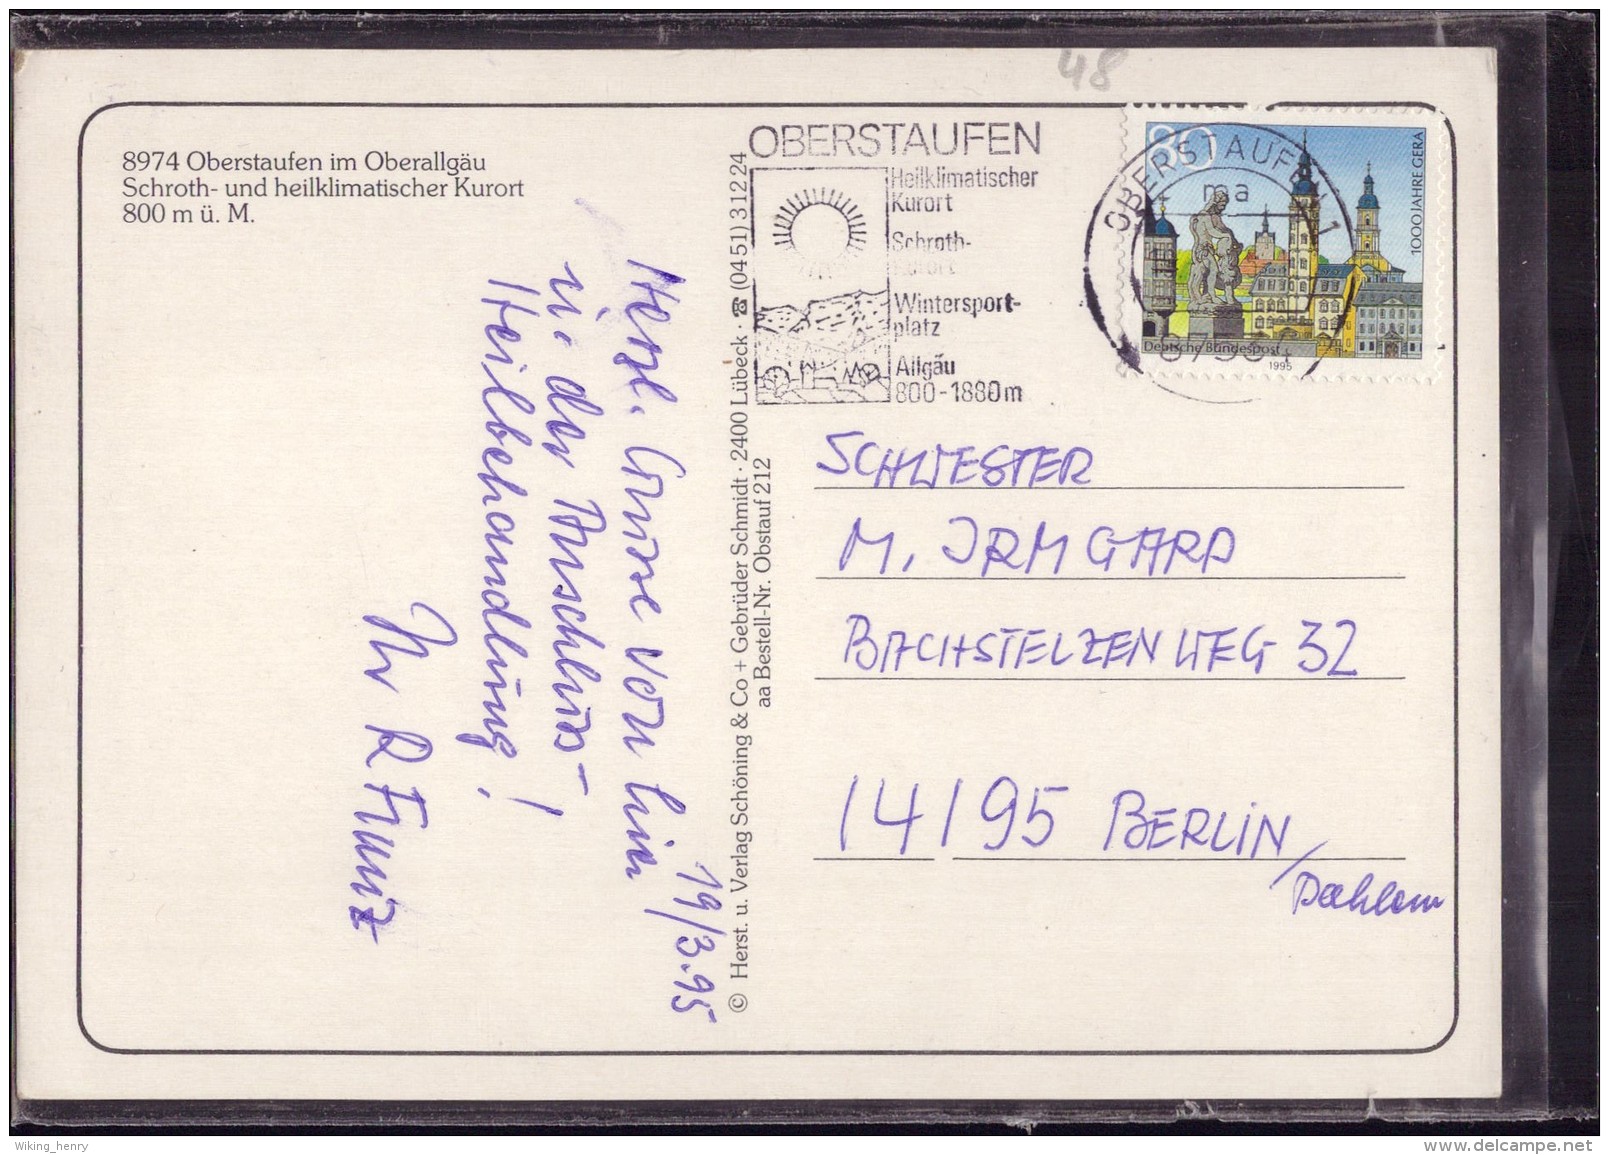 48
8974 Oberstaufen im Oberallgäu
Schroth- und heilklimatischer Kurort
800 m ü. M.
OBERSTAUFEN
Heilklimatischer
Kurort
Schroth-
kurort
Wintersport-
platz
Allgäu
800-1880m
OBERSTAUFEN 1
ma
80
1000 JAHRE GERA
Deutsche Bundespost
1995
19/3.95
Herzl. Grüsse von hier
in der Anschluss-
Heilbehandlung!
Ihr R
© Herst. u. Verlag Schöning & Co + Gebrüder Schmidt · 2400 Lübeck · ☎ (0451) 31224
aa Bestell-Nr. Obstauf 212
SCHWESTER
M. IRMGARD
BACHSTELZENWEG 32
14195 BERLIN/
Dahlem
Wiking_henry
www.delcampe.net